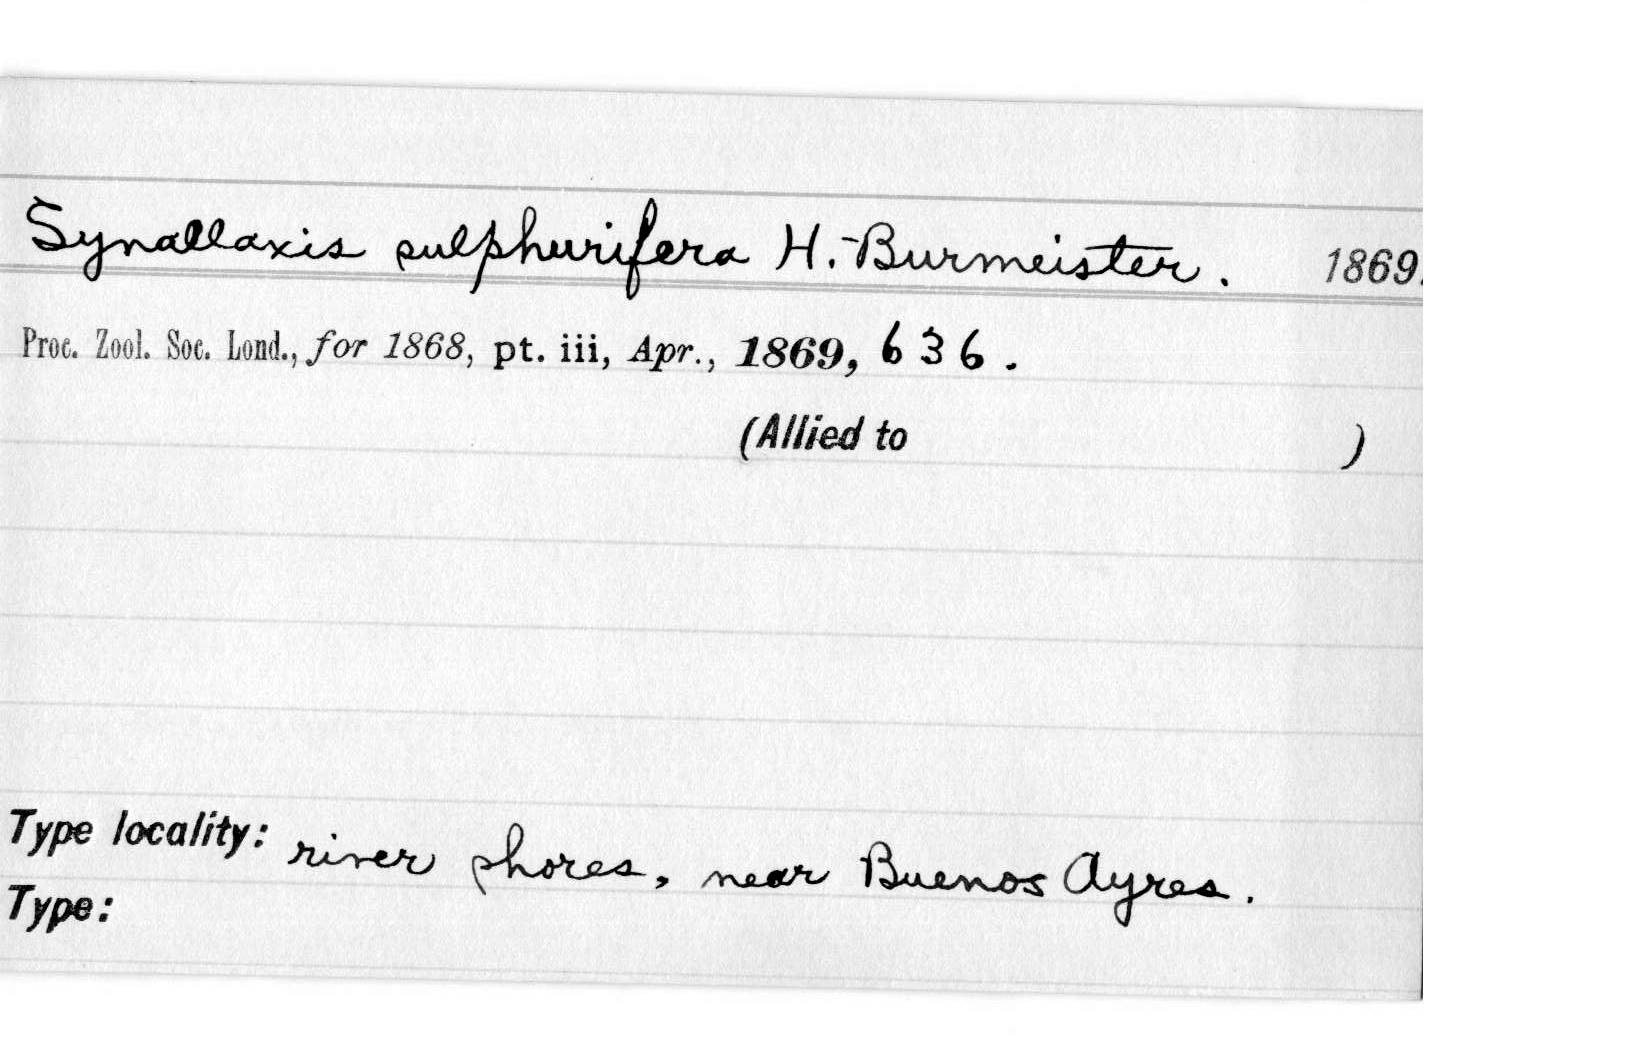 Synallaxis sulphurifera H. Burmeister. 1869.
Proc. Zool. Soc. Lond., for 1868, pt. iii, Apr., 1869, 636.
(Allied to )
Type locality: river shores, near Buenos Ayres.
Type: